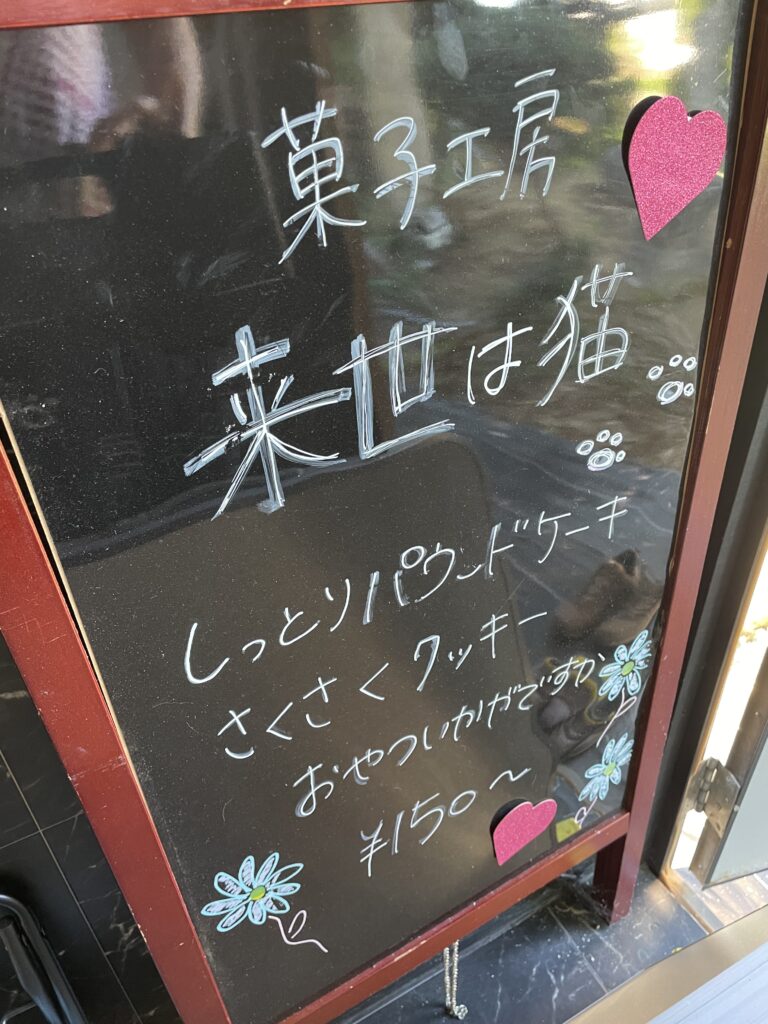 菓子工房
来世は猫
しっとりパウンドケーキ
さくさくクッキー
おやついかがですか
¥150〜